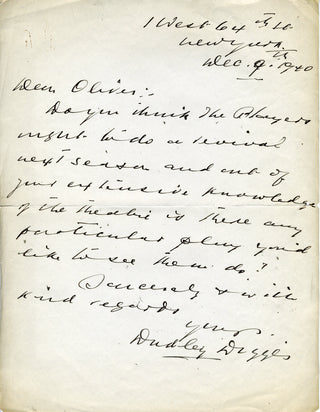 1 West 64th St
New York.
Dec. 9th 1940
Dear Oliver:-
Do you think The Players
ought to do a revival
next season and out of
your extensive knowledge
of the theatre is there any
particular play you'd
like to see them do?
Sincerely & with
kind regards
yours.
Dudley Digges